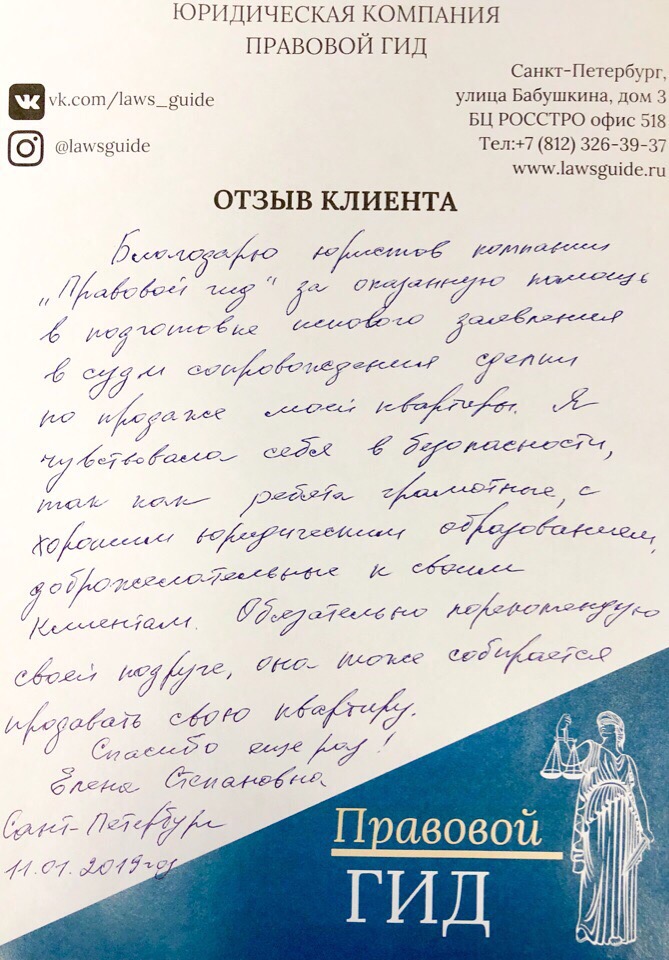 ЮРИДИЧЕСКАЯ КОМПАНИЯ
ПРАВОВОЙ ГИД
vk.com/laws_guide
@lawsguide
Санкт-Петербург,
улица Бабушкина, дом 3
БЦ РОССТРО офис 518
Тел:+7 (812) 326-39-37
www.lawsguide.ru
ОТЗЫВ КЛИЕНТА
Благодарю юристов компании
„Правовой гид“ за оказанную помощь
в подготовке искового заявления
в суд и сопровождения сделки
по продаже моей квартиры. Я
чувствовала себя в безопасности,
так как ребята грамотные, с
хорошим юридическим образованием,
доброжелательные к своим
клиентам. Обязательно порекомендую
своей подруге, она тоже собирается
продавать свою квартиру.
Спасибо еще раз!
Елена Степановна
Санкт-Петербург
11.01.2019год
Правовой
ГИД